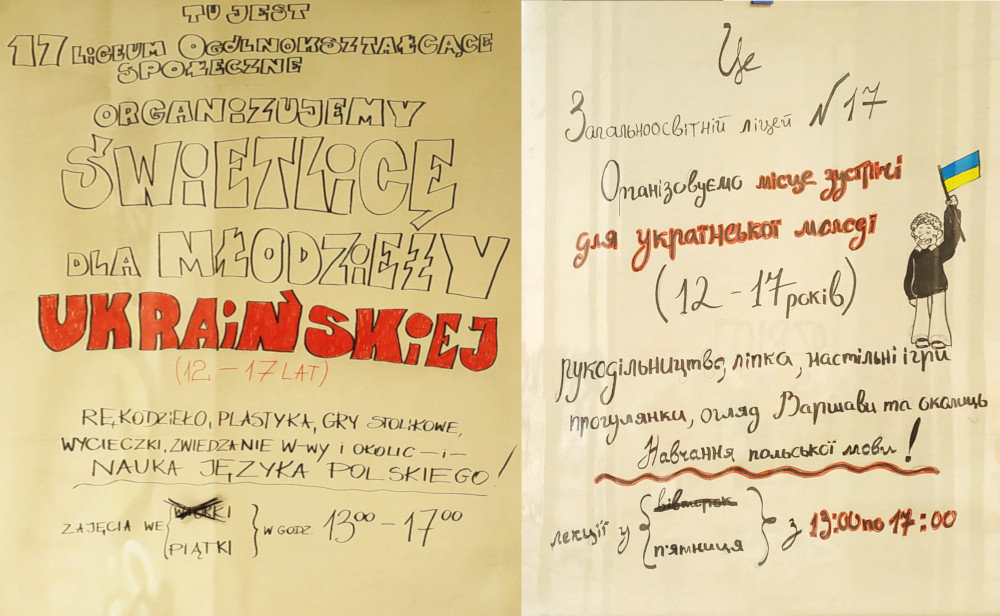 TU JEST
17 LICEUM OGÓLNOKSZTAŁCĄCE
SPOŁECZNE
ORGANIZUJEMY
ŚWIETLICĘ
DLA MŁODZIEŻY
UKRAIŃSKIEJ
(12 – 17 LAT)
RĘKODZIEŁO, PLASTYKA, GRY STOLIKOWE,
WYCIECZKI, ZWIEDZANIE W-WY i OKOLIC – i –
NAUKA JĘZYKA POLSKIEGO!
ZAJĘCIA WE { WTORKI PIĄTKI } W GODZ. 13⁰⁰ – 17⁰⁰
Це
Загальноосвітній ліцей N 17
Організовуємо місце зустрічі
для української молоді
(12 – 17 років)
рукодільництво, ліпка, настільні ігри
прогулянки, огляд Варшави та околиць
Навчання польської мови!
лекції у { вівторок п'ятниця } з 13:00 по 17:00